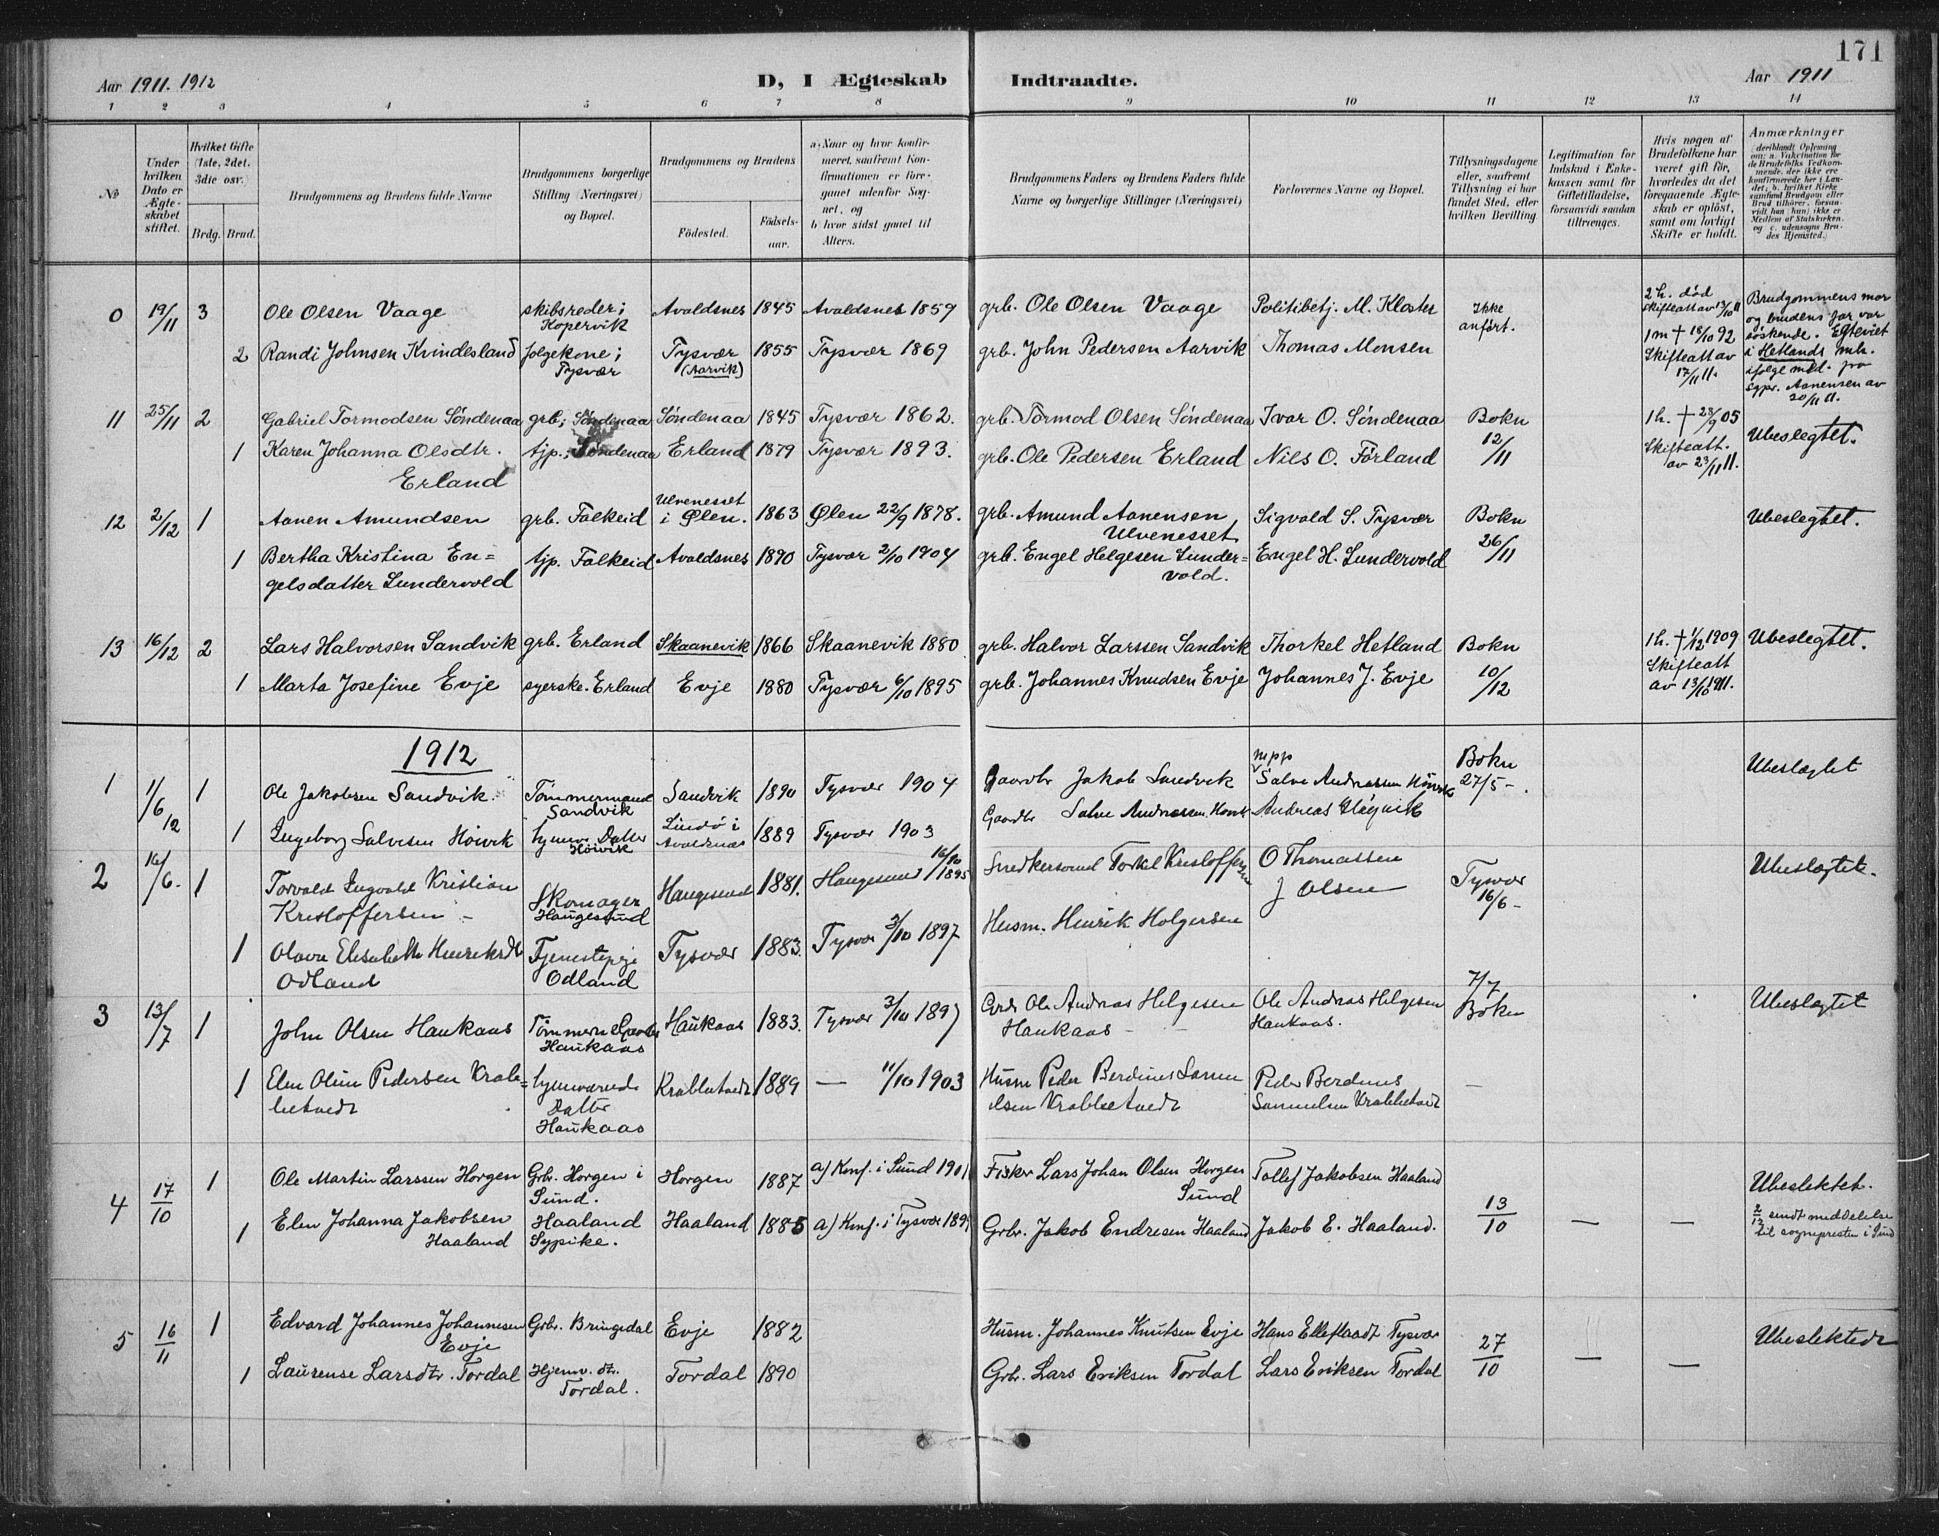 171
Aar 1911. 1912
D, I Ægteskab
Indtraadte.
Aar 1911
1 2 3 4 5 6 7 8 9 10 11 12 13 14
No
Under hvilken Dato er Ægteskabet stiftet.
Hvilket Gifte (1ste, 2det, 3die osv.
Brdg. Brud.
Brudgommens og Brudens fulde Navne
Brudgommens borgerlige Stilling (Næringsvei) og Bopæl.
Brudgommens og Brudens
Födested.
Födselsaar.
a) Naar og hvor konfirmeret, saafremt Konfirmationen er foregaaet udenfor Sognet, og
b) hvor sidst gaaet til Alters.
Brudgommens Faders og Brudens Faders fulde Navne og borgerlige Stillinger (Næringsvei)
Forlovernes Navne og Bopæl.
Tillysningsdagene eller, saafremt Tillysning ei har fundet Sted, efter hvilken Bevilling.
Legitimation for Indskud i Enkekassen samt for Giftetilladelse, forsaavidt saadan tiltrænges.
Hvis nogen af Brudefolkene har været gift för, hvorledes da det foregaaende Ægteskab er oplöst, samt om lovligt Skifte er holdt.
Anmærkninger
(deriblandt Oplysning om: a. Vakcination for de Brudefolks Vedkommende, der ikke ere konfirmerede her i Landet; b. hvilket Kirkesamfund Brudgom eller Brud tilhörer, forsaavidt han (hun) ikke er Medlem af Statskirken, og c. udensogns Brudes Hjemsted.)
0 19/11 3 Ole Olsen Vaage skibsreder; Kopervik Avaldsnes 1845 Avaldsnes 1859 grb. Ole Olsen Vaage Politibetj. M. Kloster Ikke anført. 2 h. død Skifteatt av 13/10 11
2 Randi Johnsen Kvindesland følgekone; Tysvær Tysvær (Aarvik) 1855 Tysvær 1869 grb. John Pedersen Aarvik Thomas Monsen 1 m † 18/10 92 Skifteatt av 17/11 11.
Brudgommens mor og brudens far var søskende. Egteviet i Hetlands mh. ifølge med. fra sgpr. Aanensen av 20/11 11.
11 25/11 2 Gabriel Tormodsen Söndenaa grb; Söndenaa Söndenaa 1845 Tysvær 1862. grb. Tormod Olsen Söndenaa Ivar O. Söndenaa Bokn 12/11 1 h. † 28/9 05 Skifteatt. av 23/11 11. Ubeslegtet.
1 Karen Johanna Olsdtr. Erland tjp; Söndenaa Erland 1879 Tysvær 1893. grb. Ole Pedersen Erland Nils O. Förland
12 2/12 1 Aanen Amundsen grb. Falkeid Ulvenesset i Ølen. 1863 Ølen 22/9 1878. grb. Amund Aanensen Ulvenesset Sigvald S. Tysvær Bokn 26/11 Ubeslegtet.
1 Bertha Kristina Engelsdatter Lundervold tjp. Falkeid Avaldsnes 1890 Tysvær 2/10 1904 grb. Engel Helgesen Lundervold. Engel H. Lundervold
13 16/12 2 Lars Halvorsen Sandvik grb. Erland Skaanevik 1866 Skaanevik 1880 grb. Halvor Larssen Sandvik Thorkel Hetland Bokn 10/12 1 h. † 1/12 1909 Skifteatt av 13/10 1911. Ubeslegtet.
1 Marta Josefine Evje syerske. Erland Evje 1880 Tysvær 6/10 1895 grb. Johannes Knudsen Evje Johannes J. Evje
1912
1 1/6 12 1 Ole Jakobsen Sandvik. Tömmermand Sandvik Sandvik 1890 Tysvær 1904 Gaardbr Jakob Sandvik mpp Salve Andreassen Höivik Bokn 27/5 -. Ubeslægtet
1 Ingeborg Salvesen Höivik hjemv. Datter Höivik Lindö i Avaldsnæs 1889 Tysvær 1903 Gaardbr Salve Andreassen Höivik Andreas
2 16/6. 1 Torvald Ingvald Kristian Kristoffersen - Skomager Haugesund Haugesund 1881. Haugesund 16/10 1895 Snedkersvend Torkel Kristoffersen O Thomassen J Olsen Tysvær 16/6 - Ubeslægtet.
1 Olava Elisabeth Henriksdtr Odland Tjenestepige Odland Tysvær 1883. Tysvær 3/10 1897 Husm. Henrik Holgersen
3 13/7 1 John Olsen Haukaas Tömmerm Haukaas Haukaas 1883. Tysvær 3/10 1897 Ole Andreas Helgesen Haukaas - Ole Andreas Helgesen Haukaas. 7/7 Bokn Ubeslægtet
1 Elen Oline Pedersen Krabbetvedt hjemværende Datter Haukaas Krabbetvedt 1889 — 11/10 1903 Husm Peder Berdines Samuelsen Krabbetvedt Peder Berdines Samuelsen Krabbetvedt -
4 17/10 1 Ole Martin Larssen Horgen Grbr. Horgen i Sund. Horgen 1887 a) Konf. i Sund 1901 Fisker Lars Johan Olsen Horgen Sund Tollef Jakobsen Haaland 13/10 — — Ubeslektet.
1 Elen Johanna Jakobsen Haaland Haaland Sypike. Haaland 1885 a) Konf. i Tysvær 189 Grbr. Jakob Endresen Haaland Jakob E. Haaland. 2/12 sendt meddelelse til sognepresten i Sund
5 16/11 1 Edvard Johannes Johannesen Evje Grbr. Bringedal Evje 1882 Husm. Johannes Knutsen Evje Hans Elleflaadt Tysvær 27/10 — — Ubeslektede
1 Laurense Larsdtr. Tordal Hjemv. dtr. Tordal. Tordal 1890 Grbr. Lars Eriksen Tordal Lars Eriksen Tordal